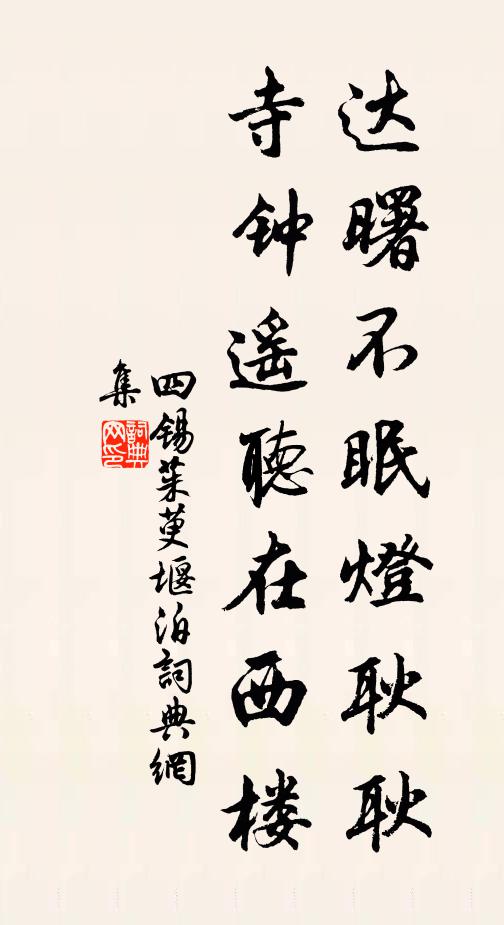 达曙不眠燈耿耿
寺钟遥聽在西楼
四锡茱萸堰泊詞典網
集
詞典
网印